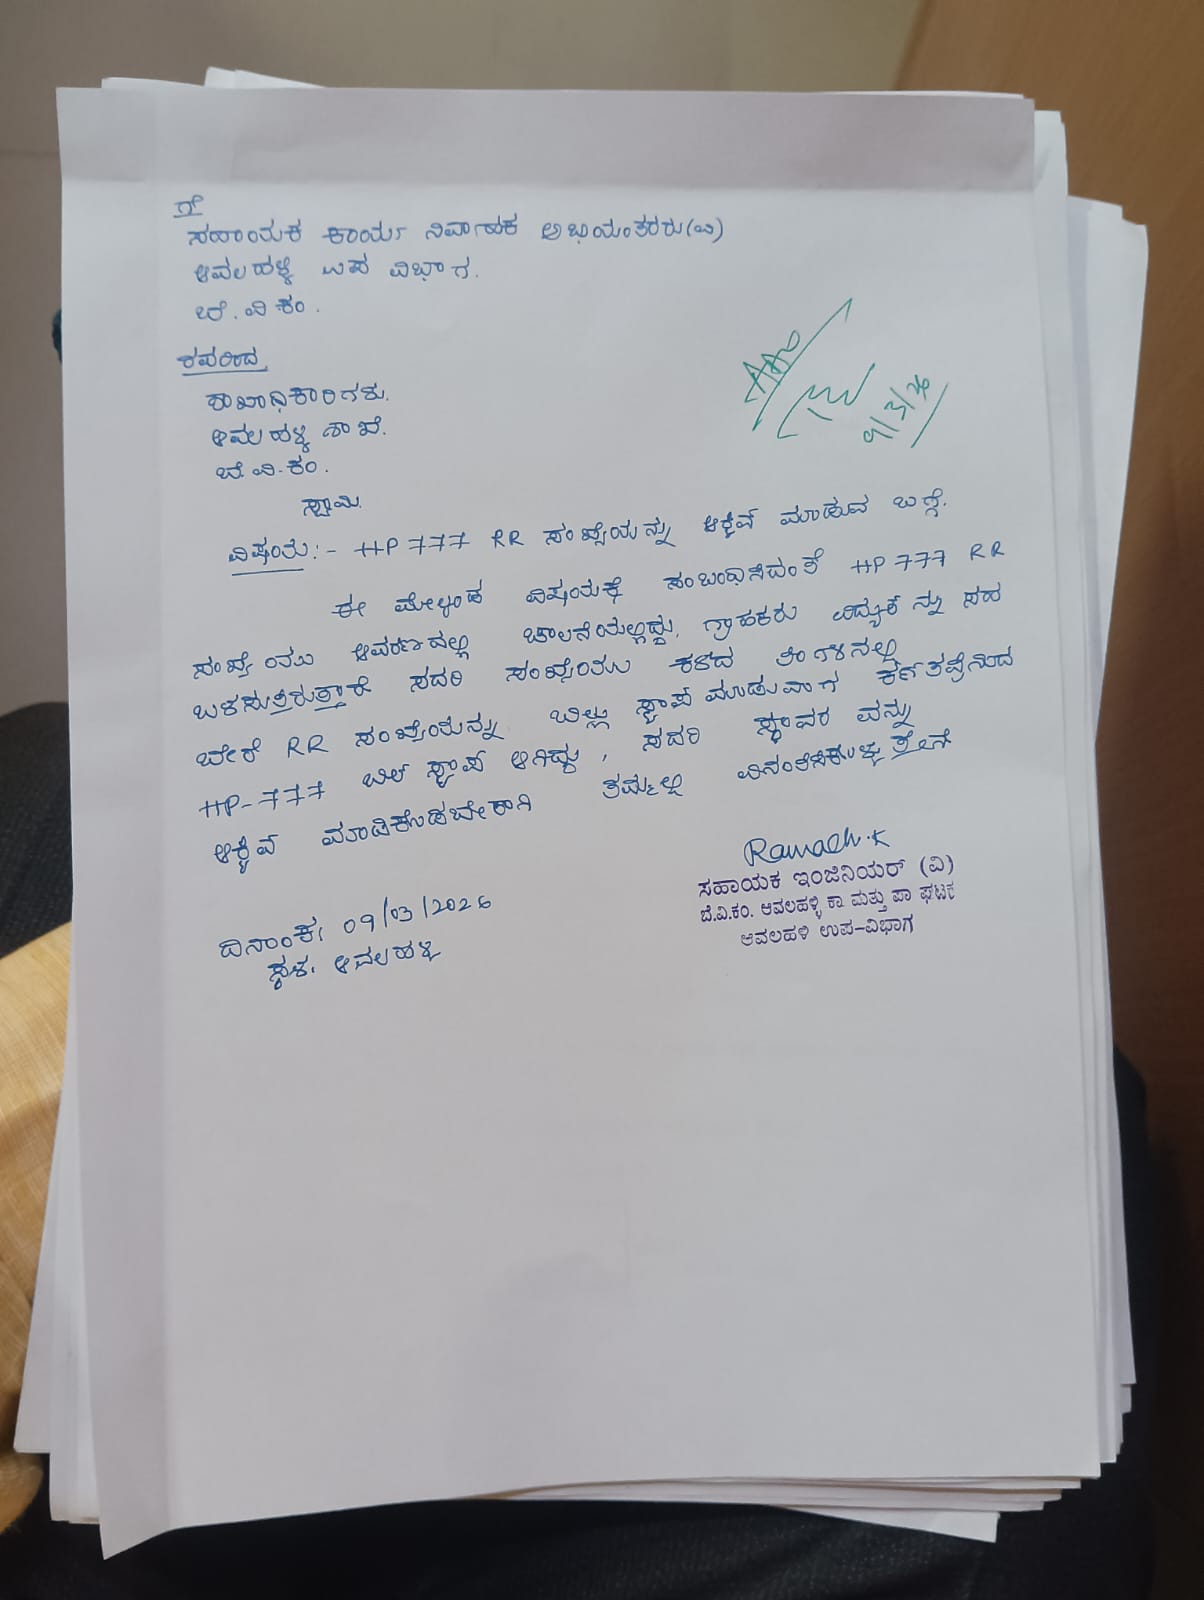 ಗೆ
ಸಹಾಯಕ ಕಾರ್ಯ ನಿರ್ವಾಹಕ ಅಭಿಯಂತರರು(ವಿ)
ಆವಲಹಳ್ಳಿ ಉಪ ವಿಭಾಗ.
ಬೆ.ವಿ.ಕಂ.
ಶಾಖಾಧಿಕಾರಿಗಳು.
ಆವಲಹಳ್ಳಿ ಶಾಖೆ.
ಬೆ.ವಿ.ಕಂ.
ಸ್ವಾಮಿ.
9/3/26
ವಿಷಯ:- HP 777 RR ಸಂಖ್ಯೆಯನ್ನು ಆಕ್ಟಿವ್ ಮಾಡುವ ಬಗ್ಗೆ.
ಈ ಮೇಲ್ಕಂಡ ವಿಷಯಕ್ಕೆ ಸಂಬಂಧಿಸಿದಂತೆ HP 777 RR
ಸಂಖ್ಯೆಯು ಆವರಣದಲ್ಲಿ ಚಾಲನೆಯಲ್ಲಿದ್ದು, ಗ್ರಾಹಕರು ವಿದ್ಯುತ್ ನ್ನು ಸಹ
ಬಳಸುತ್ತಿರುತ್ತಾರೆ ಸದರಿ ಸಂಖ್ಯೆಯು ಕಳೆದ ತಿಂಗಳಿನಲ್ಲಿ
ಬೇರೆ RR ಸಂಖ್ಯೆಯನ್ನು ಬಿಲ್ಲು ಸ್ಟಾಪ್ ಮಾಡುವಾಗ ಕಣ್ತಪ್ಪಿನಿಂದ
HP-777 ಬಿಲ್ ಸ್ಟಾಪ್ ಆಗಿದ್ದು, ಸದರಿ ಸ್ಥಾವರ ವನ್ನು
ಆಕ್ಟಿವ್ ಮಾಡಿಕೊಡಬೇಕಾಗಿ ತಮ್ಮಲ್ಲಿ ವಿನಂತಿಸಿಕೊಳ್ಳುತ್ತೇನೆ
Ramesh.K
ಸಹಾಯಕ ಇಂಜಿನಿಯರ್ (ವಿ)
ಬೆ.ವಿ.ಕಂ. ಆವಲಹಳ್ಳಿ ಕಾ ಮತ್ತು ಪಾ ಘಟಕ
ಆವಲಹಳಿ ಉಪ-ವಿಭಾಗ
ದಿನಾಂಕ: 09/03/2026
ಸ್ಥಳ: ಆವಲಹಳ್ಳಿ